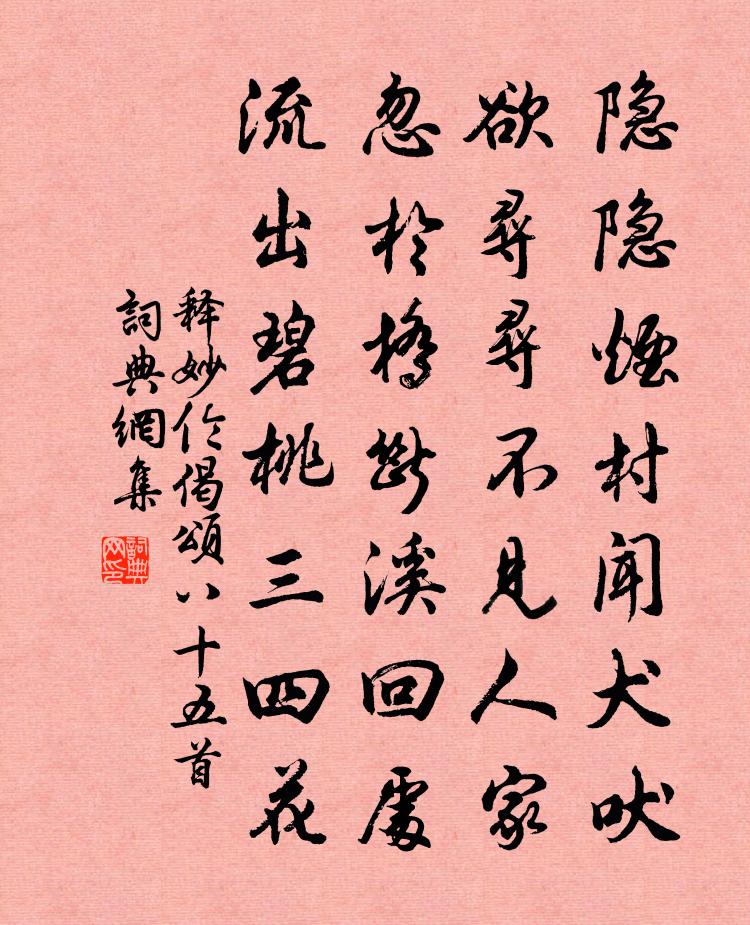 隐隐煙村闻犬吠
欲尋尋不见人家
忽於橋斷溪回處
流出碧桃三四花
释妙伦偈頌八十五首
詞典網集
詞典網印